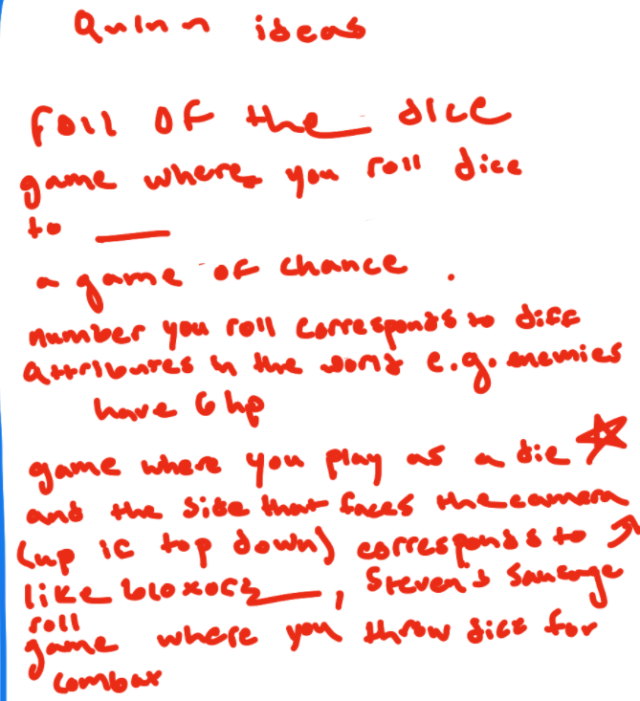 Quinn ideas
roll of the dice
game where you roll dice
to ___
a game of chance.
number you roll corresponds to diff
attributes in the world e.g. enemies
have 6 hp
game where you play as a die
and the side that faces the camera
(up if top down) corresponds to
like bloxorz___, Steven's Sausage
roll
game where you throw dice for
combat